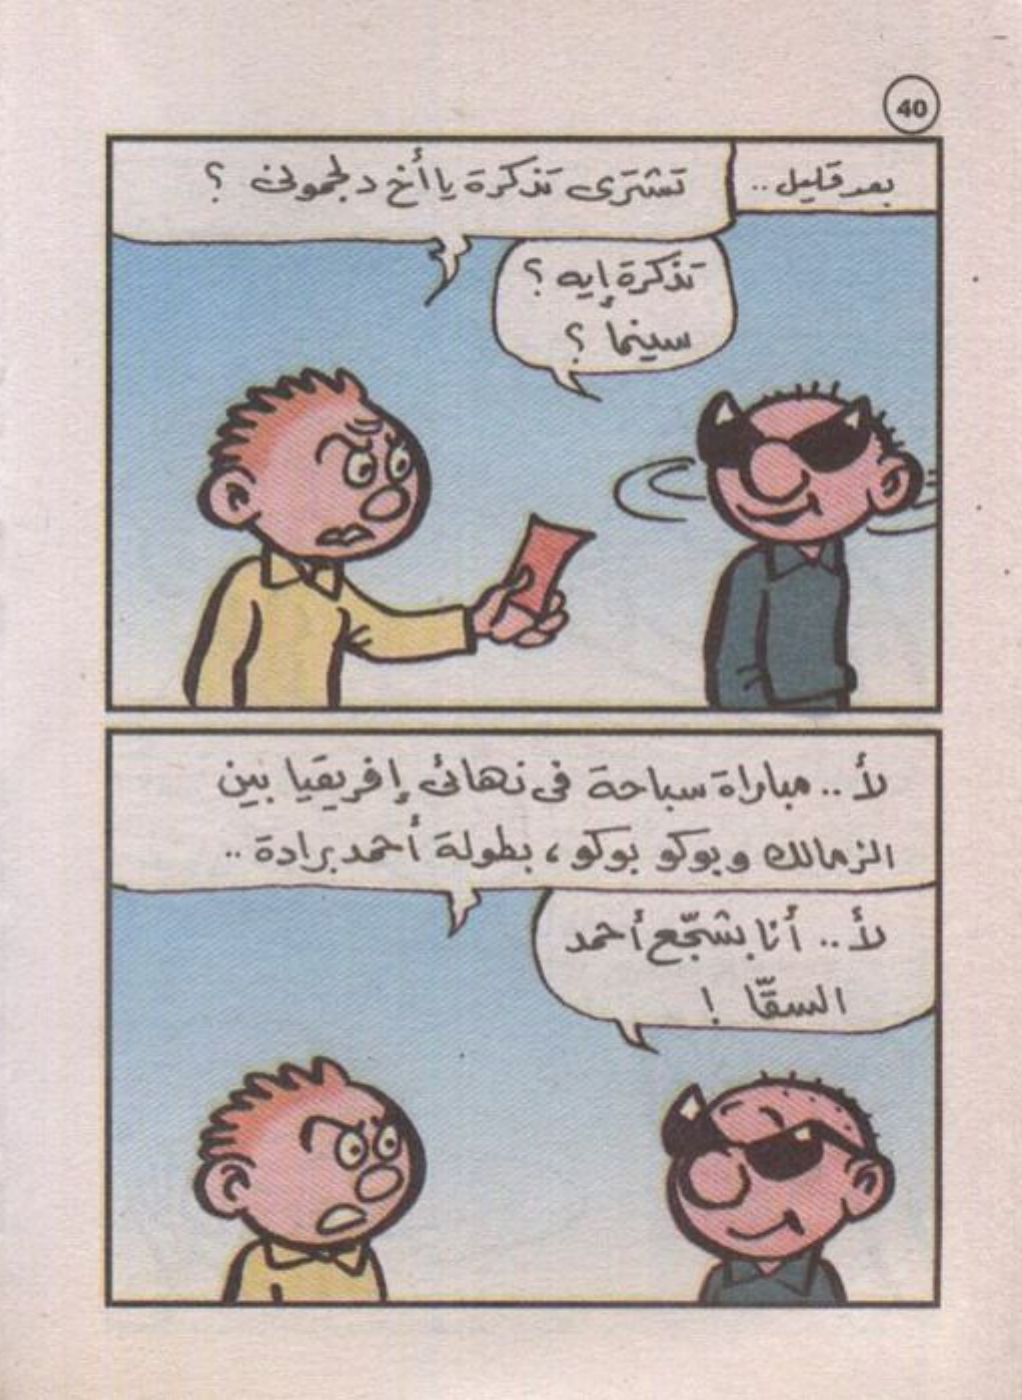 40
بعد قليل..
تشترى تذكرة يا أخ دلجمونى ؟
تذكرة إيه ؟
سينما ؟
لأ .. مباراة سباحة فى نهائى إفريقيا بين
الزمالك وبوكو بوكو ، بطولة أحمد برادة ..
لأ .. أنا بشجّع أحمد
السقّا !